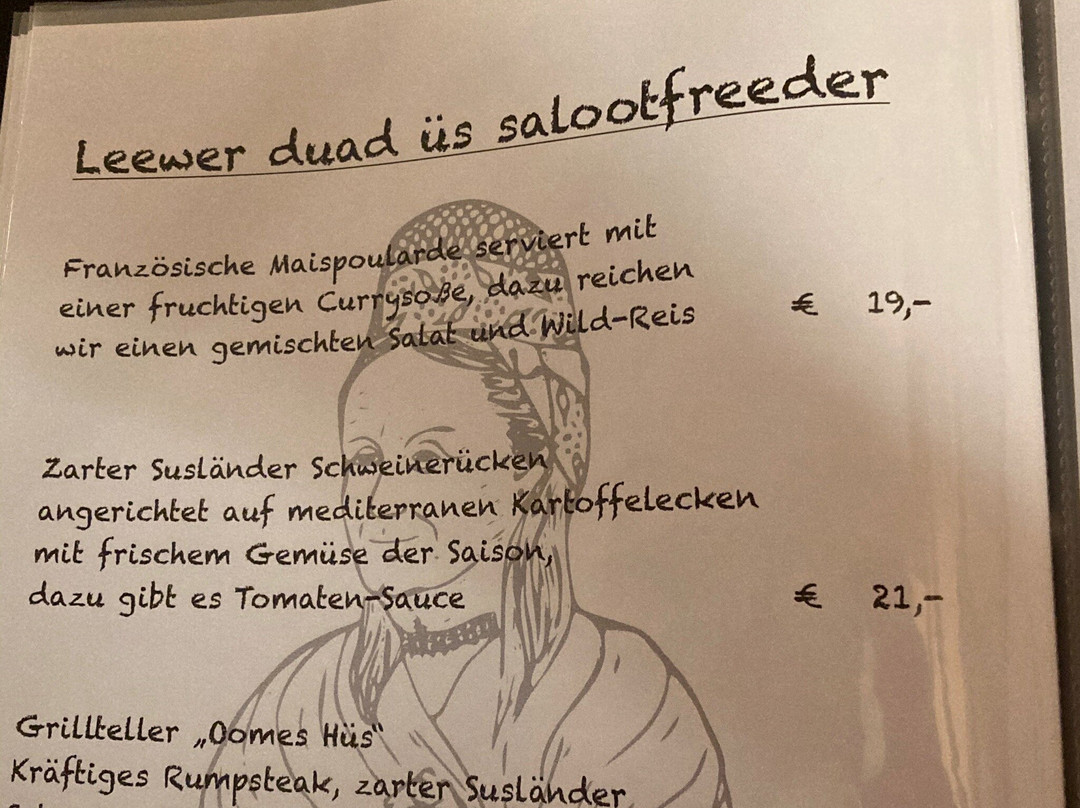 Leewer duad üs salootfreeder
Französische Maispoularde serviert mit
einer fruchtigen Currysoße, dazu reichen
wir einen gemischten Salat und Wild-Reis
€ 19,-
Zarter Susländer Schweinerücken
angerichtet auf mediterranen Kartoffelecken
mit frischem Gemüse der Saison,
dazu gibt es Tomaten-Sauce
€ 21,-
Grillteller „Oomes Hüs“
Kräftiges Rumpsteak, zarter Susländer